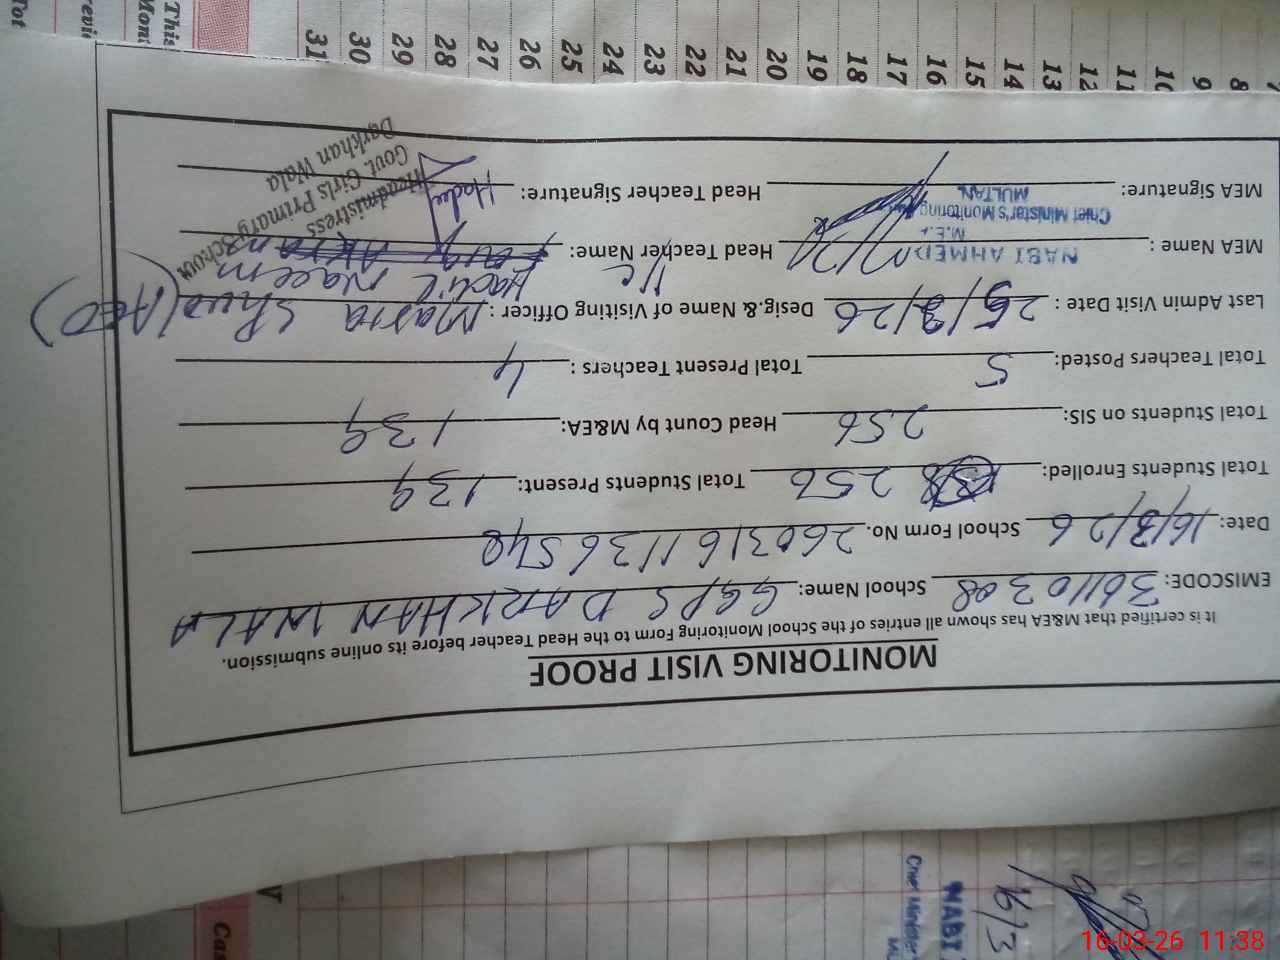 MONITORING VISIT PROOF
It is certified that M&EA has shown all entries of the School Monitoring Form to the Head Teacher before its online submission.
EMISCODE: 36110308 School Name: GGPS DARKHAN WALA
Date: 16/3/26 School Form No. 260316113654
Total Students Enrolled: 256 Total Students Present: 139
Total Students on SIS: 256 Head Count by M&EA: 139
Total Teachers Posted: 5 Total Present Teachers : 4
Last Admin Visit Date : 26 Desig.& Name of Visiting Officer : (AEO)
MEA Name : NABI AHMED Head Teacher Name: I/C Naeem
M.E.A
Chief Minister's Monitoring
MULTAN.
MEA Signature: Head Teacher Signature:
Headmistress
Govt. Girls Primary School
Darkhan Wala
8
9
10
11
12
13
14
15
16
17
18
19
20
21
22
23
24
25
26
27
28
29
30
31
This
Tot
NABI
Chief Minister
16/3
16-03-26 11:38